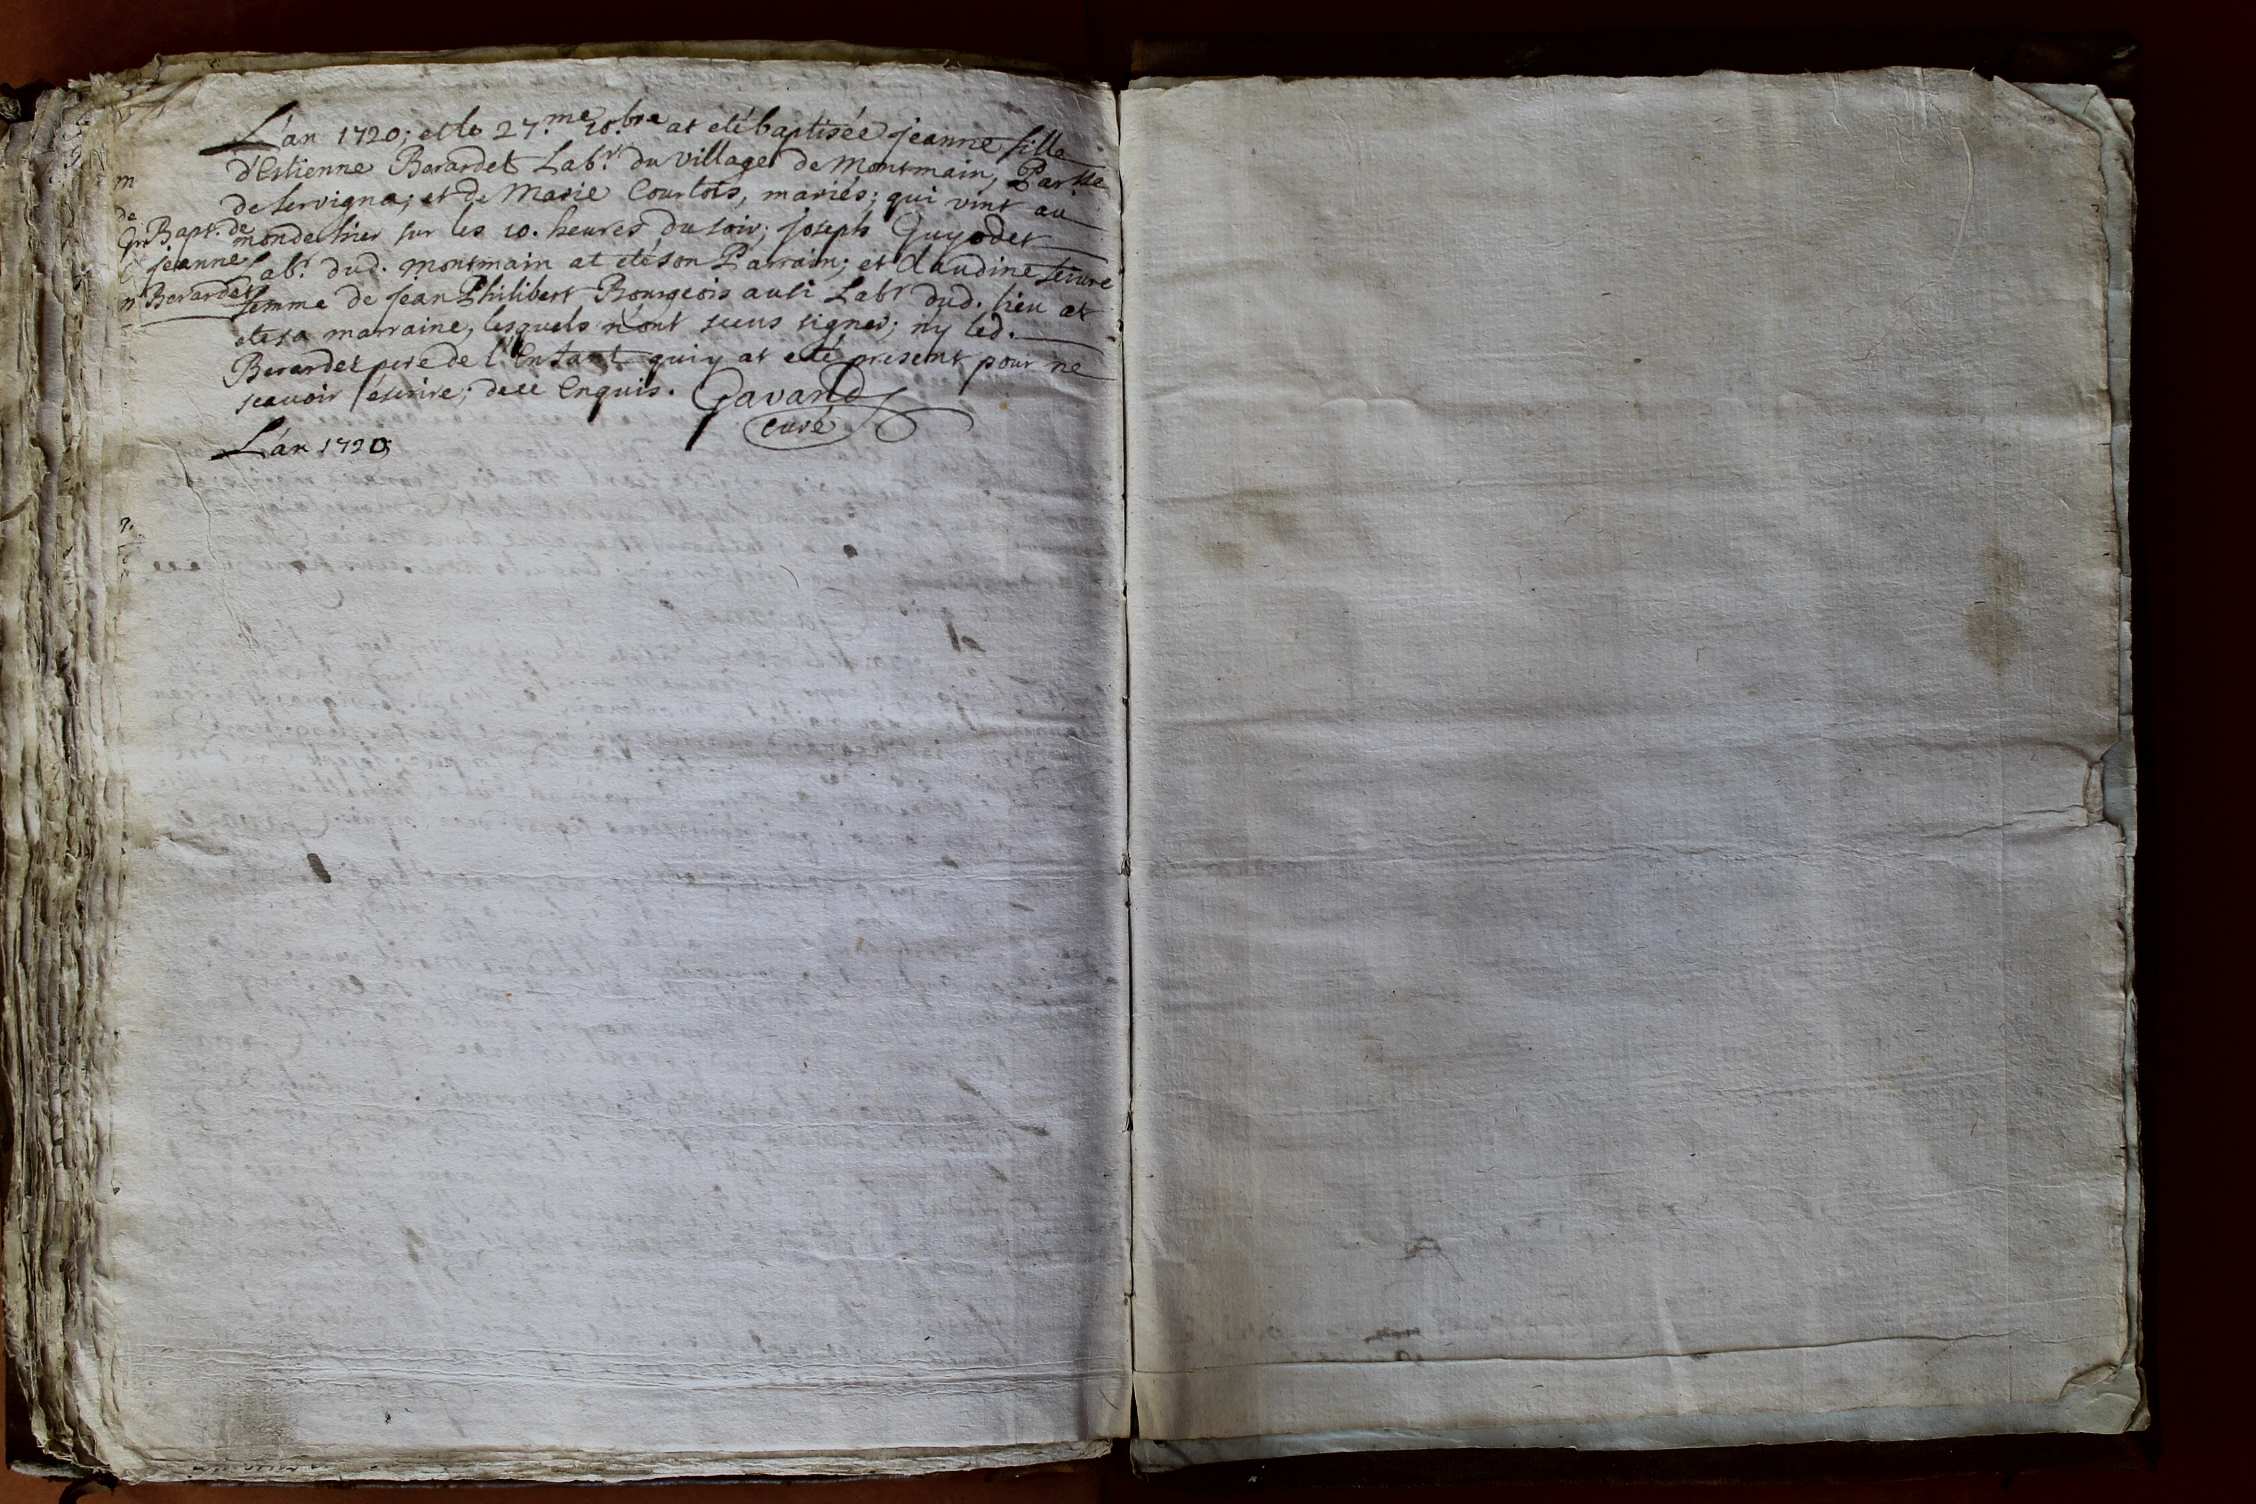 L'an 1720; et le 27.me 10.bre at eté baptisée jeanne fille
d'Estienne Berardet Lab.r du village de Montmain, Par.sse
de Servigna; et de Marie Courtois, mariés; qui vint au
monde hier sur les 10. heures du soir; joseph Guyodet
Lab.r dud. montmain at eté son Parrain; et Claudine
femme de Jean Philibert Bourgeois ausi Lab.r dud. lieu at
eté sa marraine, lesquels n'ont sceus signer; n'y led.
Berardet pere de l'Enfant qui y at eté present pour ne
scavoir escrire; de ce Enquis. Gavand
curé
Bapt. de
jeanne
Berardet
L'an 1720